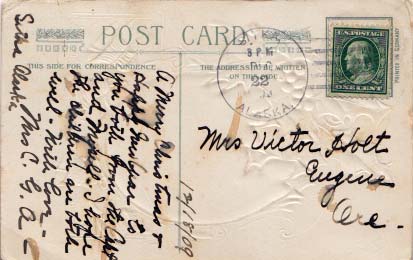 POST CARD
THIS SIDE FOR CORRESPONDENCE
THE ADDRESS TO BE WRITTEN
ON THIS SIDE.
8 PM
22
ALASKA
ONE CENT
PRINTED IN GERMANY
A Merry Christmas &
Happy New Year to
you both from the
and myself. I hope
the are both
well - With love -
Mrs C. G. A -
12/18/09
Mrs Victor Holt
Eugene
Ore.